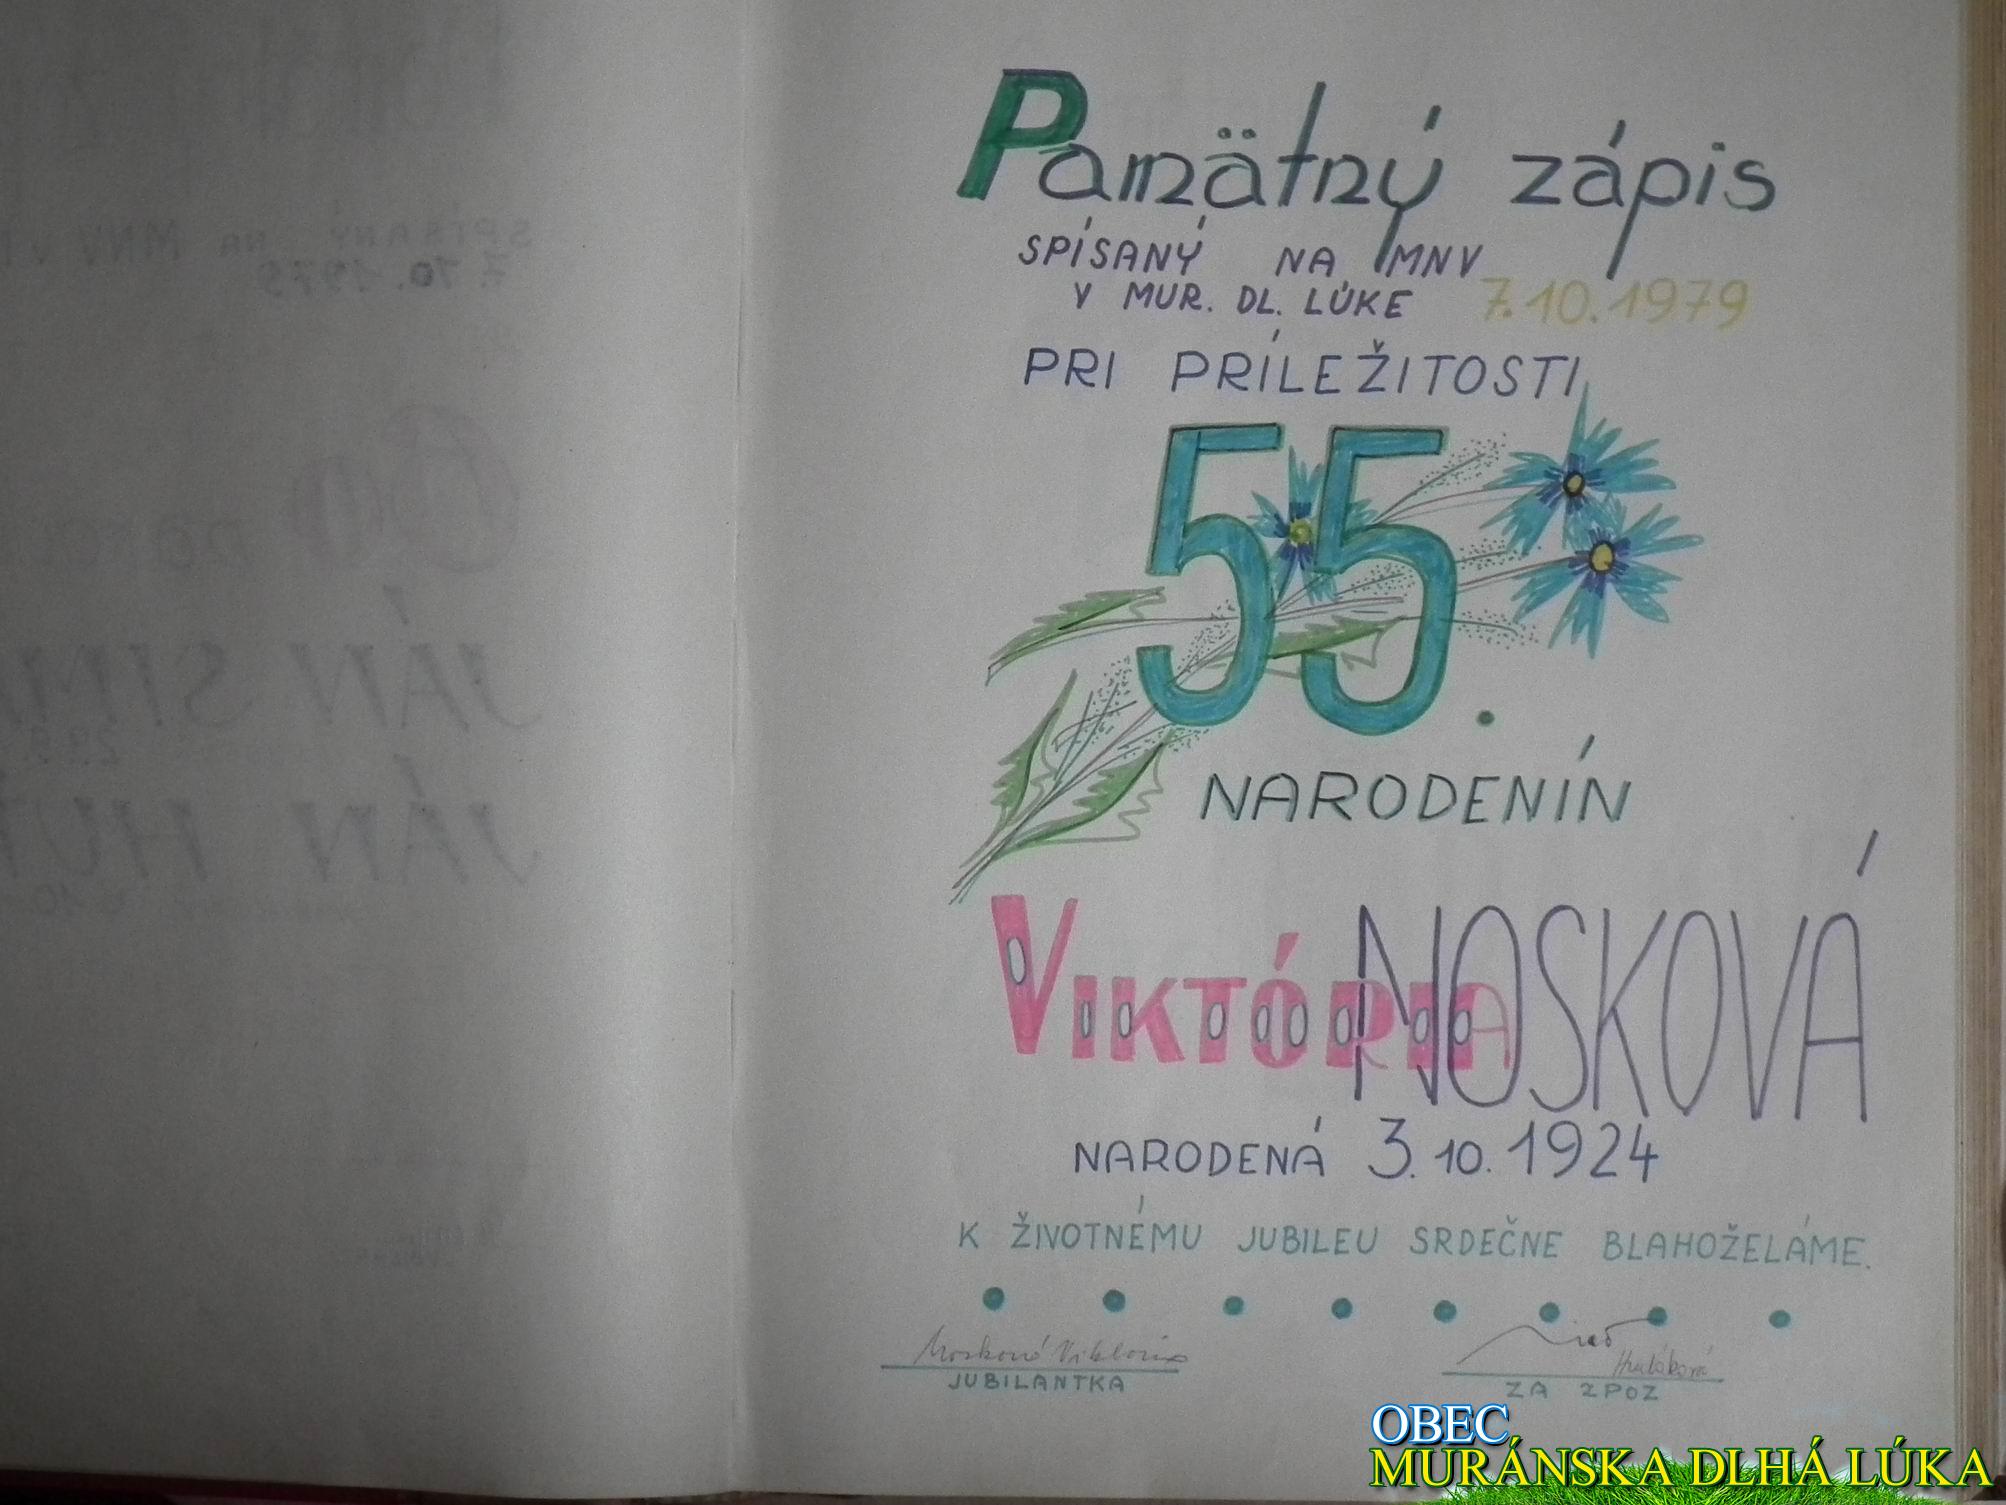 Pamätný zápis
SPÍSANÝ NA MNV
V MUR. DL. LÚKE 7.10.1979
PRI PRÍLEŽITOSTI
55.
NARODENÍN
VIKTÓRIA NOSKOVÁ
NARODENÁ 3.10.1924
K ŽIVOTNÉMU JUBILEU SRDEČNE BLAHOŽELÁME.
Nosková Viktoria
JUBILANTKA
ZA ZPOZ
OBEC
MURÁNSKA DLHÁ LÚKA